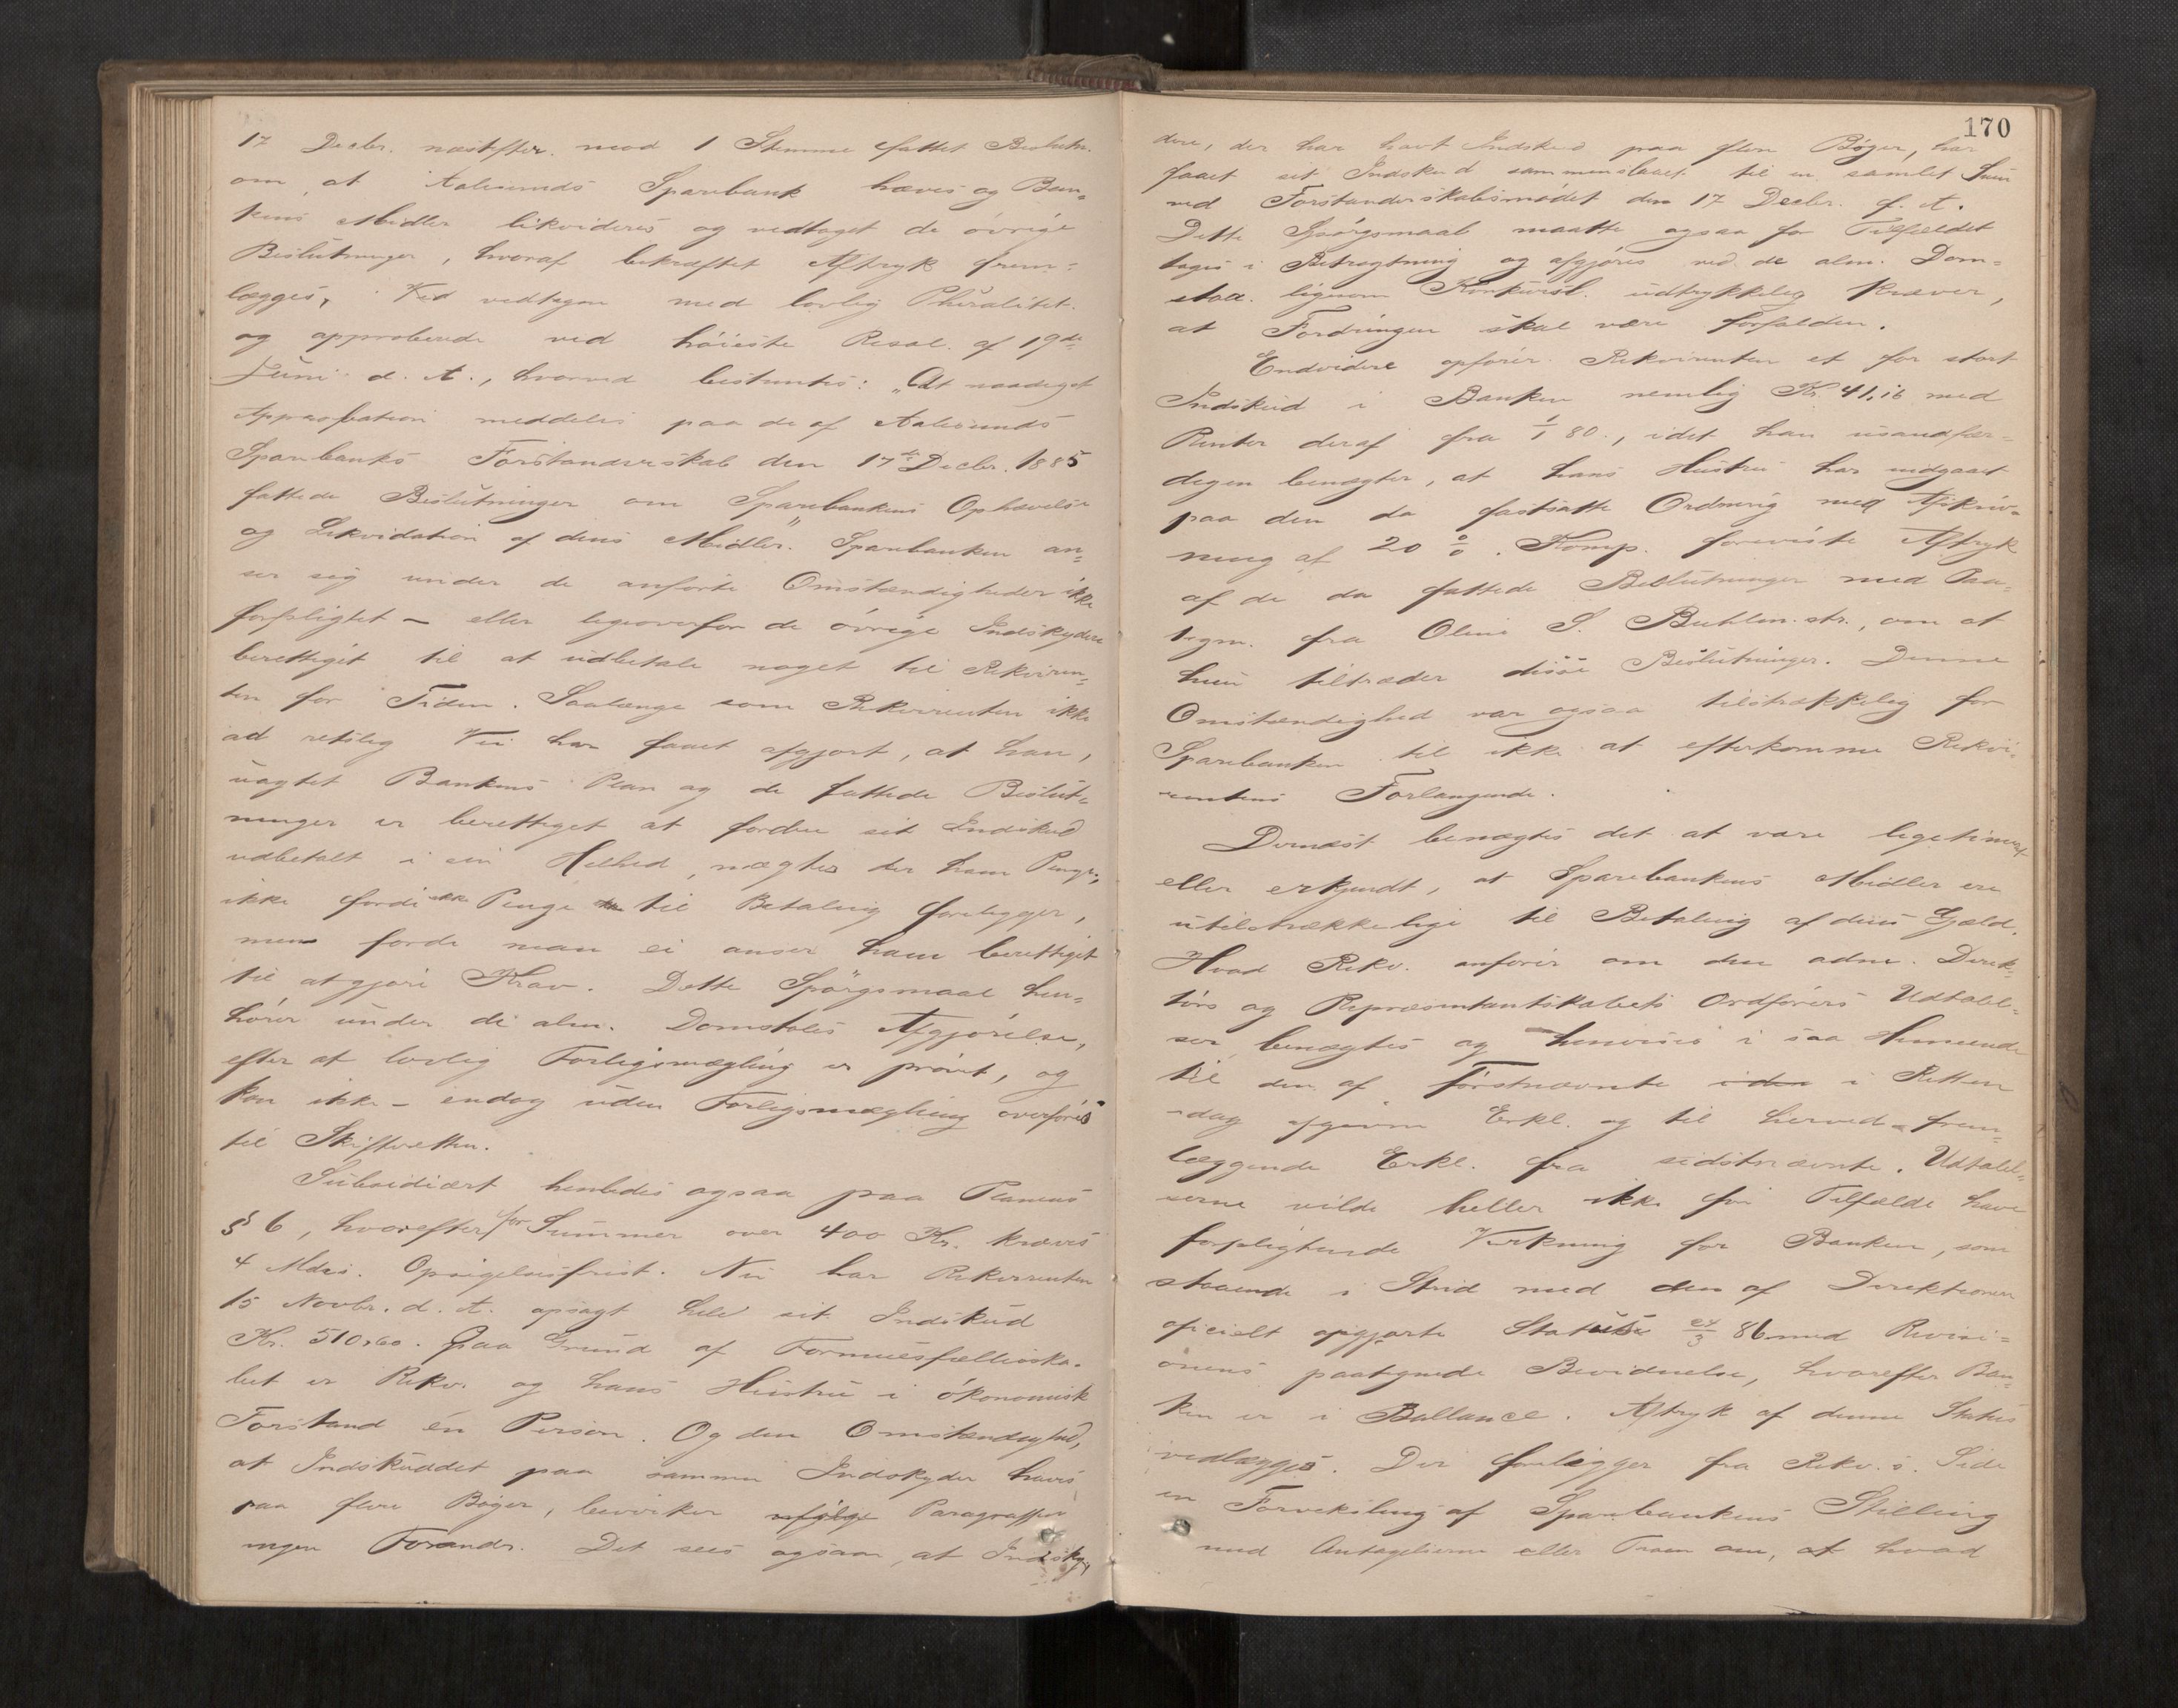 17 Decbr. næstefter. mod 1 Stemme fattet Beslutn.
om, at Aalesunds Sparebank hæves og Ban-
kens Midler likvideres og vedtaget de øvrige
Beslutninger, hvoraf bekræftet Aftryk frem-
lægges, vedtagen med lovlig Pluralitet.
og approberede ved høieste Resol. af 19de
Juni d. A., hvorved bestemtes: „At naadigst
Approbation meddeles paa de af Aalesunds
Sparebanks Forstanderskab den 17de Decbr. 1885
fattede Beslutninger om Sparebankens Ophævelse
og Likvidation af dens Midler." Sparebanken an-
ser sig under de anførte Omstændigheder ikke
forpligtet – eller ligeoverfor de øvrige Indskydere
berettiget til at udbetale noget til Rekviren-
ten for Tiden. Saalænge som Rekvirenten ikke
ad retslig Vei har faaet afgjort, at han,
uagtet Bankens Plan og de fattede Beslut-
ninger er berettiget at fordre sit Indskud
udbetalt i sin Helhed, nægtes der ham Penge,
ikke fordi ikke Penge til Betaling foreligger,
men fordi man ei anser ham berettiget
til at gjøre Krav. Dette Spørgsmaal hen-
hører under de alm. Domstoles Afgjørelse,
efter at lovlig Forligsmægling er prøvet, og
kan ikke – endog uden Forligsmægling overføres
til Skifteretten.
Subsidiært henledes ogsaa paa Planens
§ 6, hvorefter for Summer over 400 Kr. kræves
4 Mdrs. Opsigelsesfrist. Nu har Rekvirenten
15 Novbr. d. A. opsagt hele sit Indskud
Kr. 510,60. Paa Grund af Formuesfællesska-
bet er Rekv. og hans Hustru i økonomisk
Forstand én Person. Og den Omstændighed,
at Indskuddet paa samme Indskyder haves
paa flere Bøger, bevirker Paragraffen
ingen Forandr. Det sees ogsaa, at Indsky-
170
dere, der har havt Indskud paa flere Bøger, har
faaet sit Indskud sammenslaaet til en samlet Sum
ved Forstanderskabsmødet den 17 Decbr. f. A.
Dette Spørgsmaal maatte ogsaa for Tilfældet
tages i Betragtning og afgjøres ved de alm. Dom-
stole. ligesom Konkursl. udtrykkelig kræver,
at Fordringen skal være forfalden.
Endvidere opfører Rekvirenten et for stort
Indskud i Banken nemlig Kr. 41,16 med
Renter deraf fra 1/1 80., idet han usandfær-
digen benægter, at hans Hustru har indgaaet
paa den da fastsatte Ordning med Afskriv-
ning af 20 %. Komp. foreviste Aftryk
af de da fattede Beslutninger med Paa-
tegn. fra Oline S. Buhlen. str., om at
hun tiltræder disse Beslutninger. Denne
Omstændighed var ogsaa tilstrækkelig for
Sparebanken til ikke at efterkomme Rekvi-
rentens Forlangende.
Dernæst benægtes det at være legitimeret
eller erkjendt, at Sparebankens Midler ere
utilstrækkelige til Betaling af dens Gjæld.
Hvad Rekv. anfører om den adm. Direk-
tørs og Repræsentantskabets Ordførers Udtalel-
ser benægtes og henvises i saa Henseende
til den af Førstnævnte i Retten
idag afgivne Erkl. og til herved frem-
læggende Erkl. fra sidstnævnte. Udtalel-
serne vilde heller ikke for Tilfælde have
forpligtende Virkning for Banken, som
staaende i Strid med den af Direktionen
oficielt opgjorte Status 24/3 86 med Revisi-
onens paategnede Bevidnelse, hvorefter Ban-
ken er i Ballance. Aftryk af denne Status
vedlægges. Der foreligger fra Rekv.s. Side
en Forveksling af Sparebankens Stilling
med Antagelserne eller Troen om, at hvad